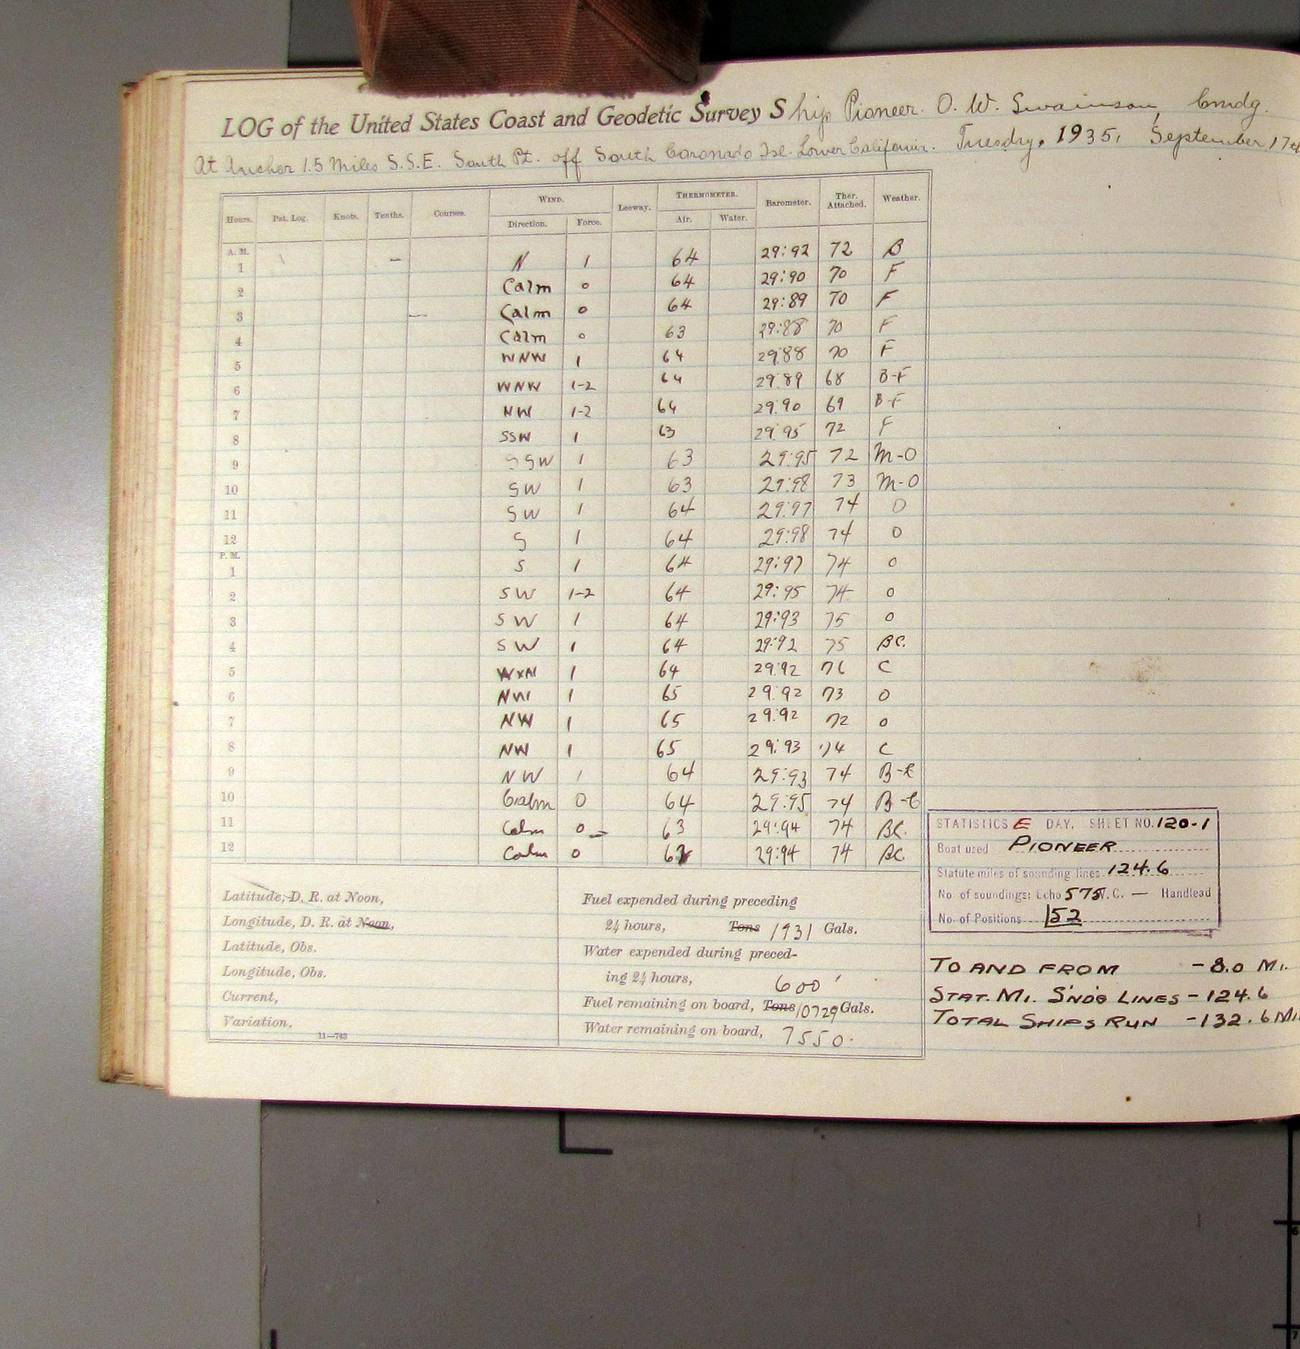 LOG of the United States Coast and Geodetic Survey Ship Pioneer. O. W. Swainson, Cmdg.
At Anchor 1.5 Miles S.S.E. South Pt. off South Coronado Isl. Lower California. Tuesday, 1935, September 17th
Hours. Pat. Log. Knots. Tenths. Courses. WIND. Leeway. THERMOMETER. Barometer. Ther. Attached. Weather.
Direction. Force. Air. Water.
A. M.
1 N 1 64 29:92 72 B
2 Calm 0 64 29:90 70 F
3 Calm 0 64 29:89 70 F
4 Calm 0 63 29:88 70 F
5 WNW 1 64 29:88 70 F
6 WNW 1-2 64 29:89 68 B-F
7 NW 1-2 64 29:90 69 B-F
8 SSW 1 63 29:95 72 F
9 SSW 1 63 29:95 72 M-O
10 SW 1 63 29:98 73 M-O
11 SW 1 64 29:97 74 O
12 S 1 64 29:98 74 O
P. M.
1 S 1 64 29:97 74 O
2 SW 1-2 64 29:95 74 O
3 SW 1 64 29:93 75 O
4 SW 1 64 29:92 75 BC.
5 WxN 1 64 29:92 76 C
6 NW 1 65 29:92 73 O
7 NW 1 65 29:92 72 O
8 NW 1 65 29:93 74 C
9 NW 1 64 29:93 74 B-C
10 Calm 0 64 29:95 74 B-C
11 Calm 0 63 29:94 74 BC.
12 Calm 0 29:94 74 BC
Latitude, D. R. at Noon,
Longitude, D. R. at Noon,
Latitude, Obs.
Longitude, Obs.
Current,
Variation,
11—763
Fuel expended during preceding
24 hours, Tons 1931 Gals.
Water expended during preced-
ing 24 hours, 600
Fuel remaining on board, Tons 10729 Gals.
Water remaining on board, 7550.
STATISTICS E DAY. SHEET NO. 120-1
Boat used PIONEER
Statute miles of sounding lines 124.6
No of soundings: Echo 575 V.C. — Handlead
No. of Positions 152
TO AND FROM - 8.0 MI.
STAT. MI. S'ND'G LINES - 124.6
TOTAL SHIPS RUN - 132.6 MI.